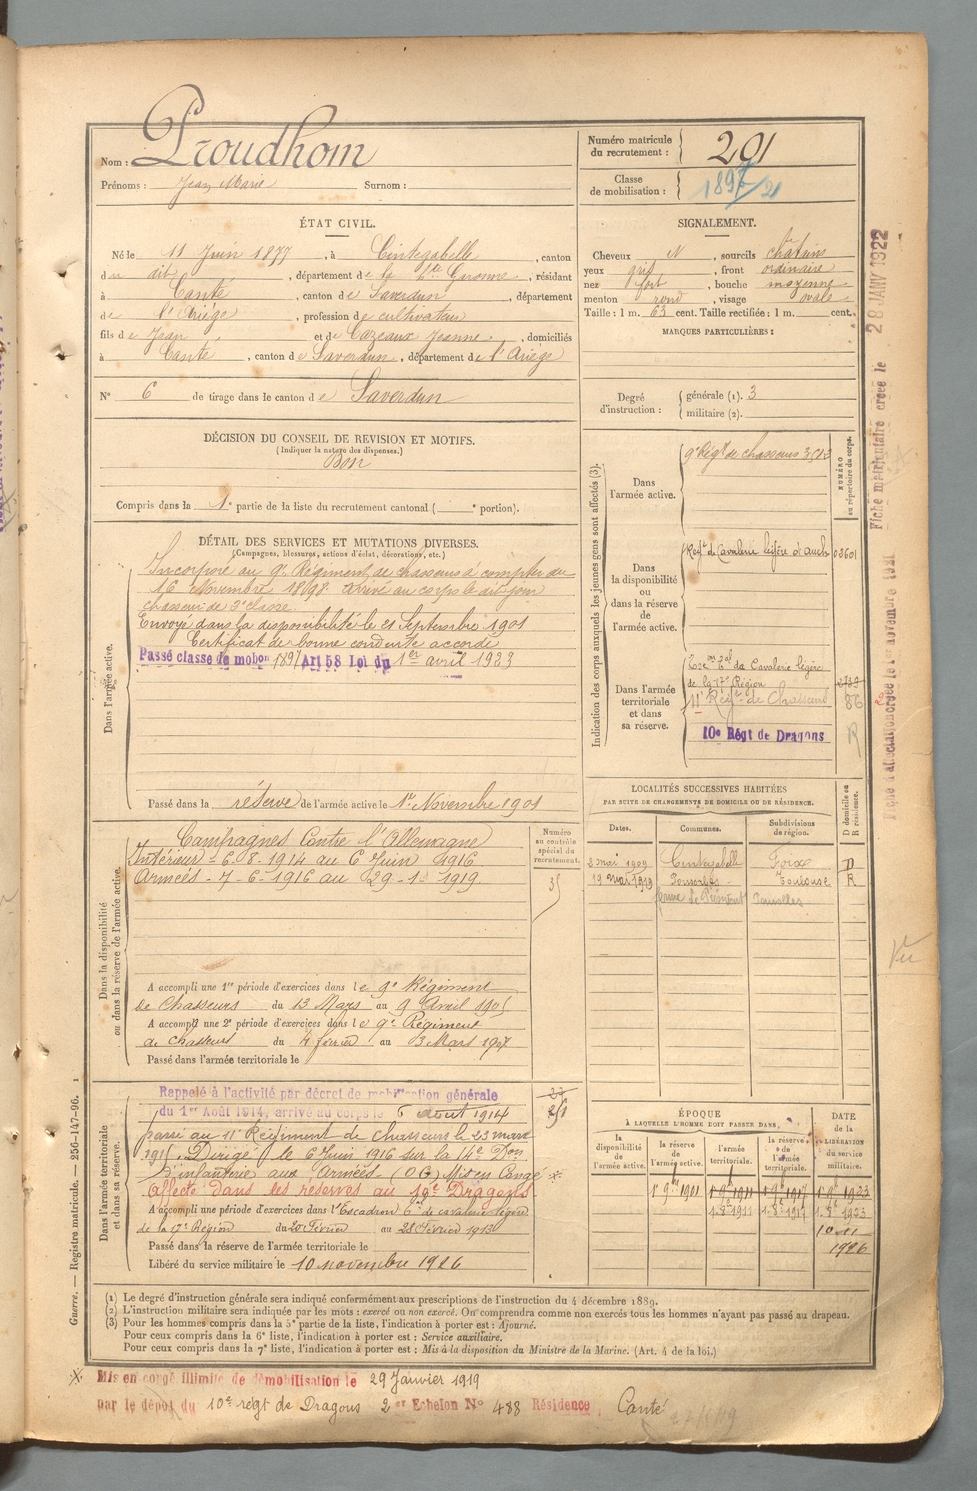 Nom : Proudhom
Prénoms : Jean Marie Surnom :
Numéro matricule du recrutement : 201
Classe de mobilisation : 1897/21
ÉTAT CIVIL.
Né le 11 Juin 1877, à Cintegabelle, canton
du dit, département de la Hte Garonne, résidant
à Canté, canton de Saverdun, département
de l'Ariège, profession de cultivateur
fils de Jean et de Cazeaux Jeanne, domiciliés
à Canté, canton de Saverdun, département de l'Ariège
N° 6 de tirage dans le canton de Saverdun
SIGNALEMENT.
Cheveux N, sourcils châtains
yeux gris, front ordinaire
nez fort, bouche moyenne
menton rond, visage ovale
Taille : 1 m. 63 cent. Taille rectifiée : 1 m. cent.
MARQUES PARTICULIÈRES :
Degré d'instruction : générale (1). 3
militaire (2).
DÉCISION DU CONSEIL DE REVISION ET MOTIFS.
(Indiquer la nature des dispenses.)
Bon
Compris dans la 1e partie de la liste du recrutement cantonal ( e portion).
DÉTAIL DES SERVICES ET MUTATIONS DIVERSES.
(Campagnes, blessures, actions d'éclat, décorations, etc.)
Dans l'armée active.
Incorporé au 9e Régiment de chasseurs à compter du
16 Novembre 1898. Arrivé au corps le dit jour
chasseur de 2e classe.
Envoyé dans la disponibilité le 21 Septembre 1901
Certificat de bonne conduite accordé
Passé classe de mobon 1897 Art 58 Loi du 1er avril 1923
Passé dans la réserve de l'armée active le 1er Novembre 1901
Indication des corps auxquels les jeunes gens sont affectés (3).
NUMÉRO au répertoire du corps.
Dans l'armée active.
9e Régt de chasseurs 3513
Dans la disponibilité ou dans la réserve de l'armée active.
Régt de Cavalerie légère d'Auch 03601
Dans l'armée territoriale et dans sa réserve.
Escon Tal de Cavalerie légère
de la 17e Région
11e Régt de Chasseurs 86
10e Régt de Dragons R
LOCALITÉS SUCCESSIVES HABITÉES
PAR SUITE DE CHANGEMENTS DE DOMICILE OU DE RÉSIDENCE.
Dates. Communes. Subdivisions de région. D domicile ou R résidence.
2 mai 1909 Cintegabelle Foix D
19 mai 1919 Toulouse R
Dans la disponibilité ou dans la réserve de l'armée active.
Numéro au contrôle spécial du recrutement.
Campagnes Contre l'Allemagne
Intérieur - 6-8-1914 au 6 Juin 1916
Armées - 7-6-1916 au 29-1-1919.
A accompli une 1re période d'exercices dans le 9e Régiment
de Chasseurs du 13 Mars au 9 Avril 1905
A accompli une 2e période d'exercices dans le 9e Régiment
de Chasseurs du 4 février au 3 Mars 1907
Passé dans l'armée territoriale le
Dans l'armée territoriale et dans sa réserve.
Rappelé à l'activité par décret de mobilisation générale
du 1er Août 1914, arrivé au corps le 6 août 1914
passé au 11e Régiment de chasseurs le 23 mars
1915. Dirigé le 6 Juin 1916 sur la 14e Don
d'infanterie aux Armées (OG) Mis en Congé ※
affecté dans les réserves au 19e Dragons
A accompli une période d'exercices dans l'Escadron de cavalerie légère
de la 17e Région du 20 Février au 28 Février 1913
Passé dans la réserve de l'armée territoriale le
Libéré du service militaire le 10 novembre 1926
ÉPOQUE
À LAQUELLE L'HOMME DOIT PASSER DANS,
la disponibilité de l'armée active. la réserve de l'armée active. l'armée territoriale. la réserve de l'armée territoriale. DATE de la LIBÉRATION du service militaire.
1er 9bre 1901 1er 9bre 1911 1er 9bre 1917 1er 9bre 1923
1-8-1911 1-8-1917 1-8-1923
10-11
1926
(1) Le degré d'instruction générale sera indiqué conformément aux prescriptions de l'instruction du 4 décembre 1889.
(2) L'instruction militaire sera indiquée par les mots : exercé ou non exercé. On comprendra comme non exercés tous les hommes n'ayant pas passé au drapeau.
(3) Pour les hommes compris dans la 5e partie de la liste, l'indication à porter est : Ajourné.
Pour ceux compris dans la 6e liste, l'indication à porter est : Service auxiliaire.
Pour ceux compris dans la 7e liste, l'indication à porter est : Mis à la disposition du Ministre de la Marine. (Art. 4 de la loi.)
※ Mis en congé illimité de démobilisation le 29 Janvier 1919
par le dépôt du 10e régt de Dragons 2e Echelon N° 488 Résidence Canté
Guerre. — Registre matricule. — 256-147-96. 1
Fiche matriculaire créée le 28 JANV 1922
Fiche d'affectation créée le 1er novembre 1921
Vu